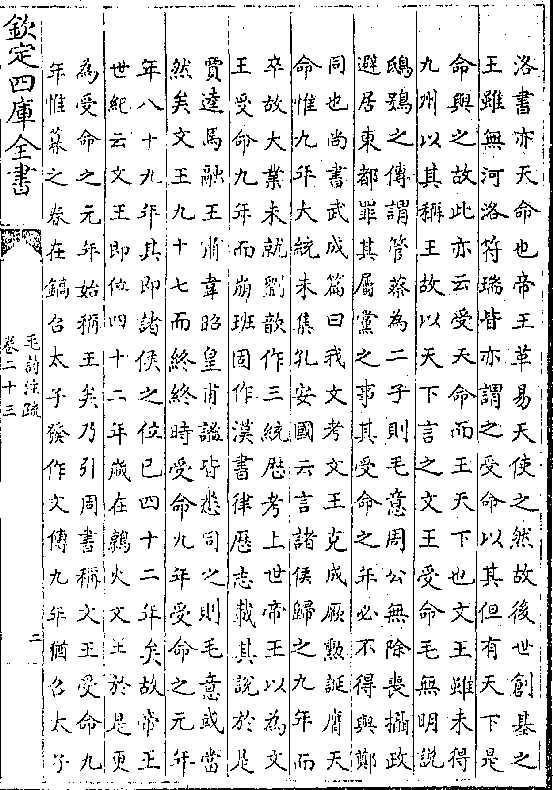 洛書亦天命也帝王革易天使之然故後世創基之
王雖無河洛符瑞皆亦謂之受命以其但有天下是
命與之故此亦云受天命而王天下也文王雖未得
九州以其稱王故以天下言之文王受命毛無明說
鴟鴞之傳謂管蔡為二子則毛意周公無除喪攝政
避居東都罪其屬黨之事其受命之年必不得與鄭
同也尚書武成篇曰我文考文王克成厥勲誕膺天
命惟九年大統未集孔安國云言諸侯歸之九年而
卒故大業未就劉歆作三統厯考上世帝王以為文
王受命九年而崩班固作漢書律歴志載其說於是
賈逵馬融王肅韋昭皇甫謐皆悉同之則毛意或當
然矣文王九十七而終終時受命九年受命之元年
年八十九年其即諸侯之位已四十二年矣故帝王
世紀云文王即位四十二年歳在鶉火文王於是更
為受命之元年始稱王矣乃引周書稱文王受命九
年惟暮之春在鎬召太子發作文傳九年猶召太子
欽定四庫全書
毛詩注疏
卷二十三
二